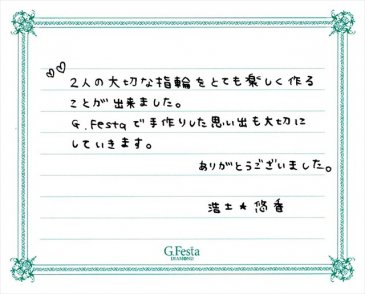 2人の大切な指輪をとても楽しく作る
ことが出来ました。
G.Festaで手作りした思い出も大切に
していきます。
ありがとうございました。
浩士★悠香
G.Festa
DIAMOND